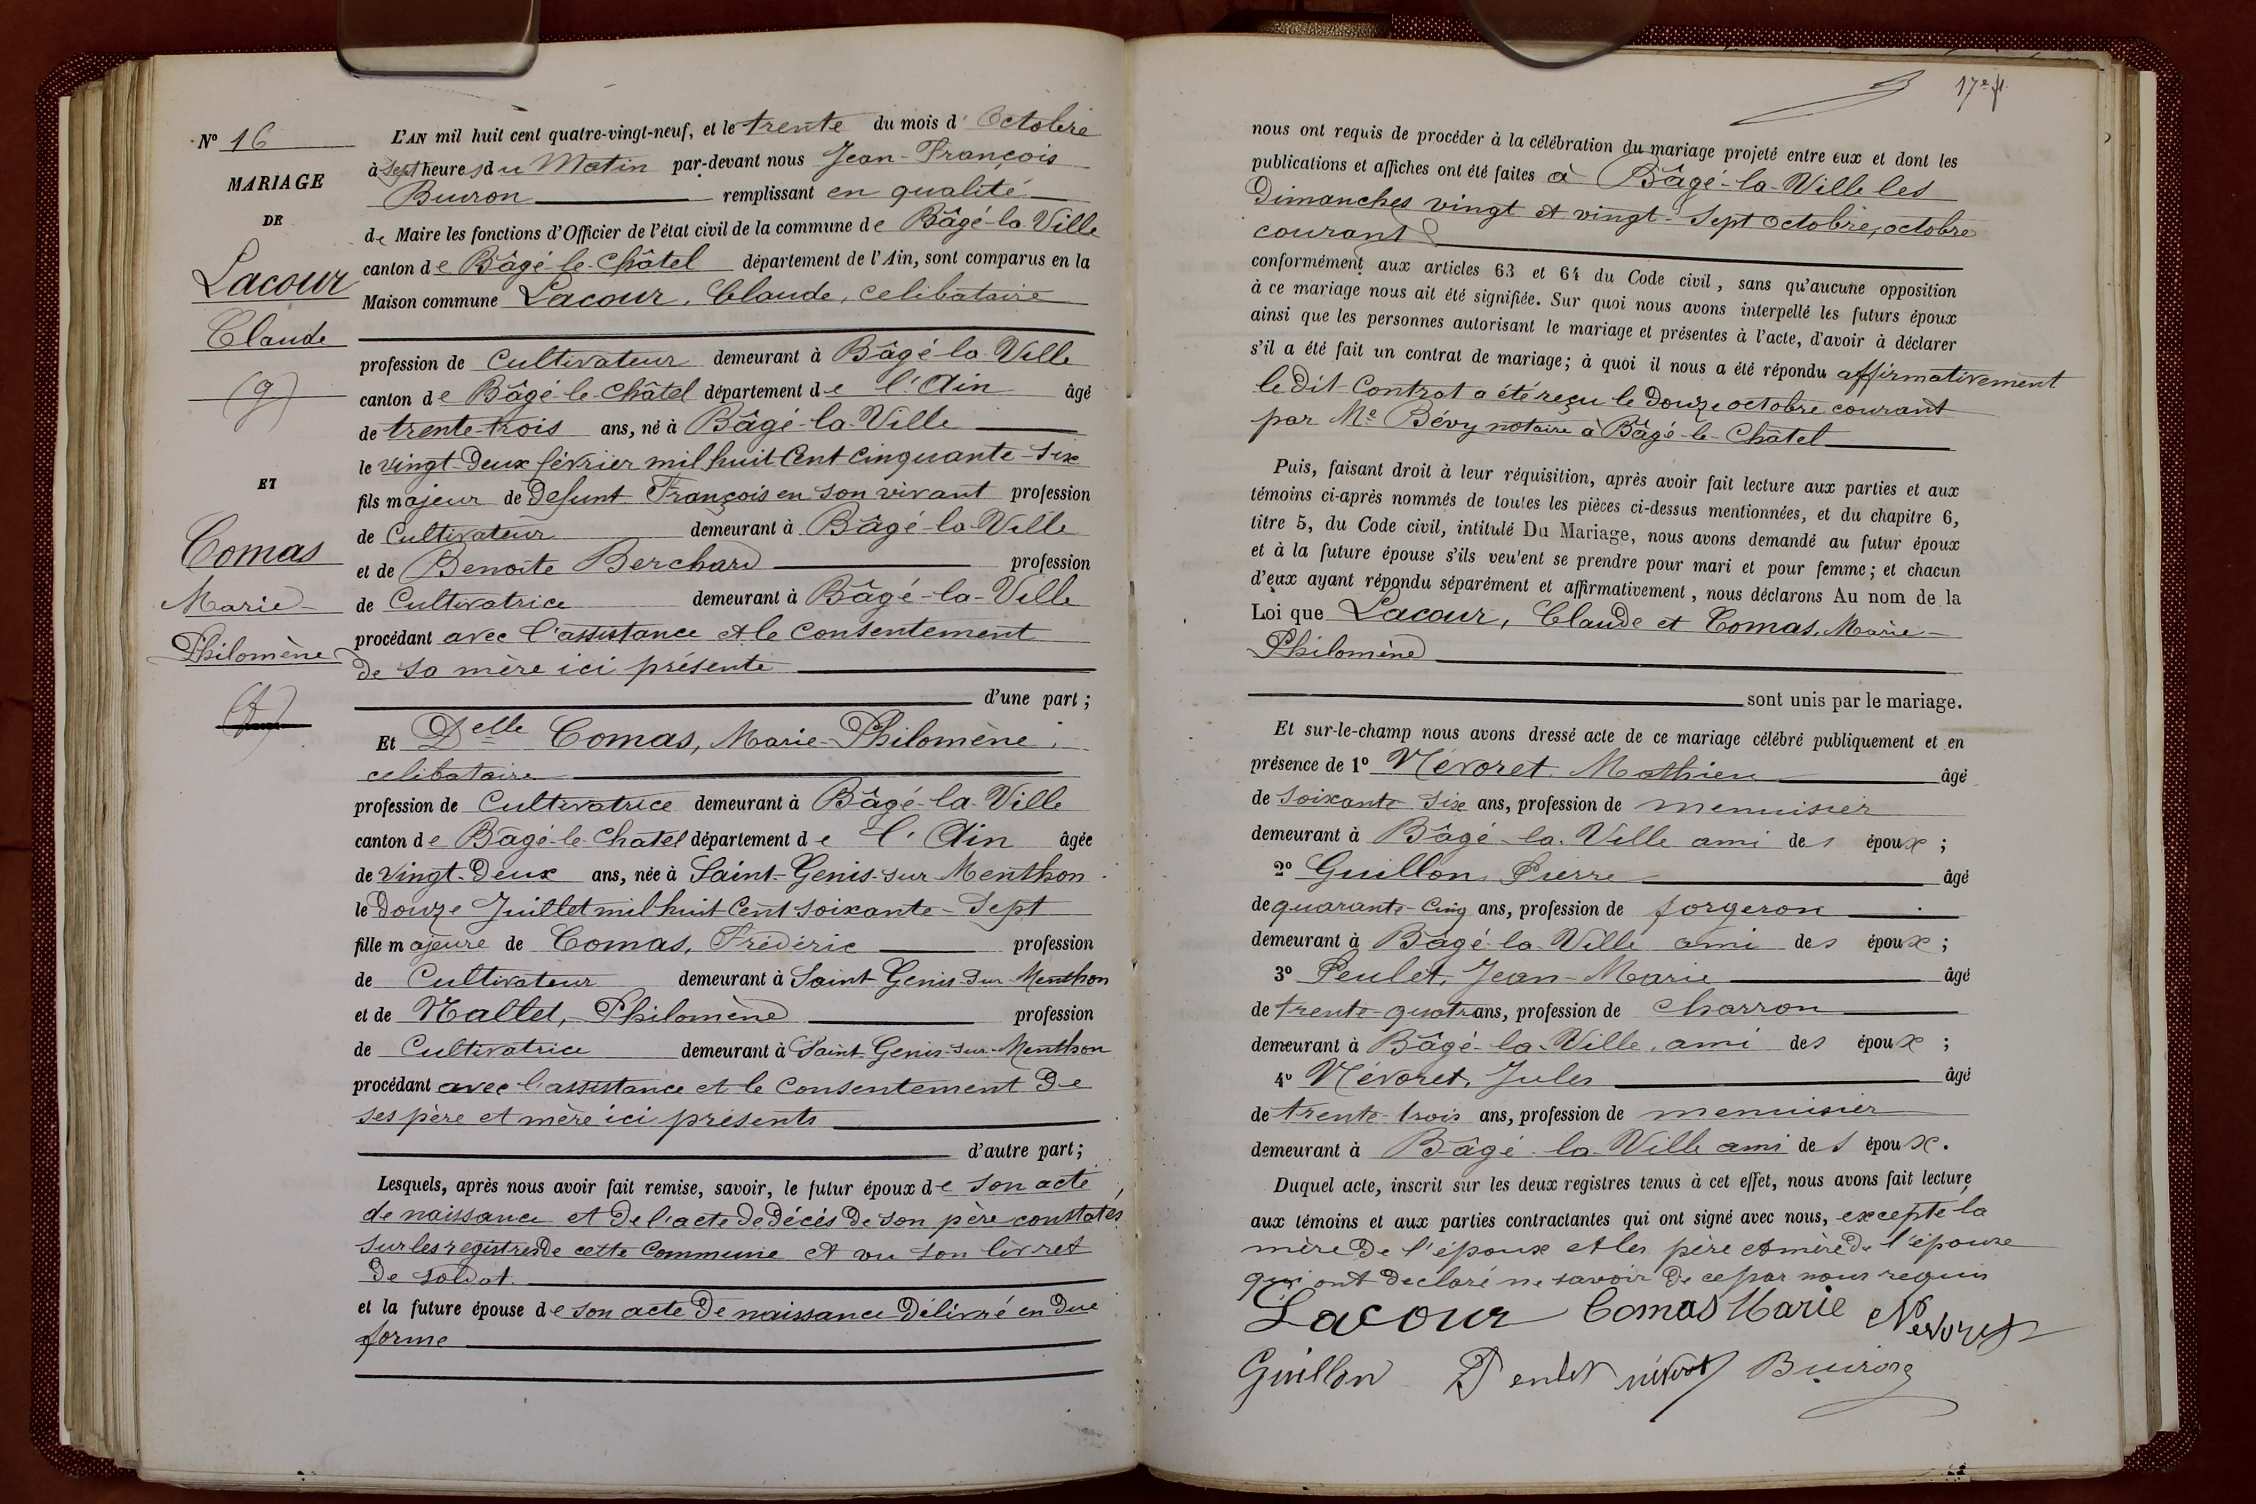 N° 16
MARIAGE
DE
Lacour
Claude
(g)
ET
Comas
Marie-
Philomène
(f)
L'AN mil huit cent quatre-vingt-neuf, et le trente du mois d' Octobre
à sept heures du Matin par-devant nous Jean-François
Buiron remplissant en qualité
de Maire les fonctions d'Officier de l'état civil de la commune de Bâgé-la-Ville
canton de Bâgé-le-Châtel département de l'Ain, sont comparus en la
Maison commune Lacour, Claude, celibataire
profession de Cultivateur demeurant à Bâgé-la-Ville
canton de Bâgé-le-Châtel département de l'Ain âgé
de trente-trois ans, né à Bâgé-la-Ville
le vingt-Deux février mil huit Cent cinquante-six
fils majeur de Defunt François en son vivant profession
de Cultivateur demeurant à Bâgé-la-Ville
et de Benoîte Berchard profession
de Cultivatrice demeurant à Bâgé-la-Ville
procédant avec l'assistance et le Consentement
de sa mère ici présente
d'une part ;
Et Delle Comas, Marie-Philomène,
celibataire
profession de Cultivatrice demeurant à Bâgé-la-Ville
canton de Bâgé-le-Châtel département de l'Ain âgée
de vingt-Deux ans, née à Saint-Genis-sur-Menthon
le Douze Juillet mil huit Cent soixante-Sept
fille majeure de Comas, Frédéric profession
de Cultivateur demeurant à Saint-Genis-sur-Menthon
et de Nallet, Philomène profession
de Cultivatrice demeurant à Saint-Genis-sur-Menthon
procédant avec l'assistance et le Consentement De
ses père et mère ici présents
d'autre part ;
Lesquels, après nous avoir fait remise, savoir, le futur époux de son acte
de naissance et De l'acte De Décés De son père constatés
sur les registres de cette Commune et vu son livret
De soldat.
et la future épouse de son acte De naissance Délivré en Due
forme
17e f.
nous ont requis de procéder à la célébration du mariage projeté entre eux et dont les
publications et affiches ont été faites à Bâgé-la-Ville les
Dimanches vingt et vingt-Sept octobre, octobre
courant
conformément aux articles 63 et 64 du Code civil, sans qu'aucune opposition
à ce mariage nous ait été signifiée. Sur quoi nous avons interpellé les futurs époux
ainsi que les personnes autorisant le mariage et présentes à l'acte, d'avoir à déclarer
s'il a été fait un contrat de mariage ; à quoi il nous a été répondu affirmativement
le Dit Contrat a été reçu le Douze octobre courant
par Me Bévy notaire à Bâgé-le-Châtel
Puis, faisant droit à leur réquisition, après avoir fait lecture aux parties et aux
témoins ci-après nommés de toutes les pièces ci-dessus mentionnées, et du chapitre 6,
titre 5, du Code civil, intitulé Du Mariage, nous avons demandé au futur époux
et à la future épouse s'ils veu'ent se prendre pour mari et pour femme ; et chacun
d'eux ayant répondu séparément et affirmativement, nous déclarons Au nom de la
Loi que Lacour, Claude et Comas, Marie-
Philomène
sont unis par le mariage.
Et sur-le-champ nous avons dressé acte de ce mariage célébré publiquement et en
présence de 1° Névoret Mathieu âgé
de soixante six ans, profession de menuisier
demeurant à Bâgé-la-Ville ami des époux ;
2° Guillon, Pierre âgé
de quarante-cinq ans, profession de forgeron
demeurant à Bâgé-la-Ville ami des époux ;
3° Peulet, Jean-Marie âgé
de trente-quatre ans, profession de charron
demeurant à Bâgé-la-Ville, ami des époux ;
4° Névoret, Jules âgé
de trente-trois ans, profession de menuisier
demeurant à Bâgé-la-Ville ami des époux.
Duquel acte, inscrit sur les deux registres tenus à cet effet, nous avons fait lecture
aux témoins et aux parties contractantes qui ont signé avec nous, excepte la
mère De l'époux et les père et mère De l'épouse
qui ont declaré ne savoir De ce par nous requis
Lacour Comas Marie Nevoret
Guillon Peulet névoret Buiron